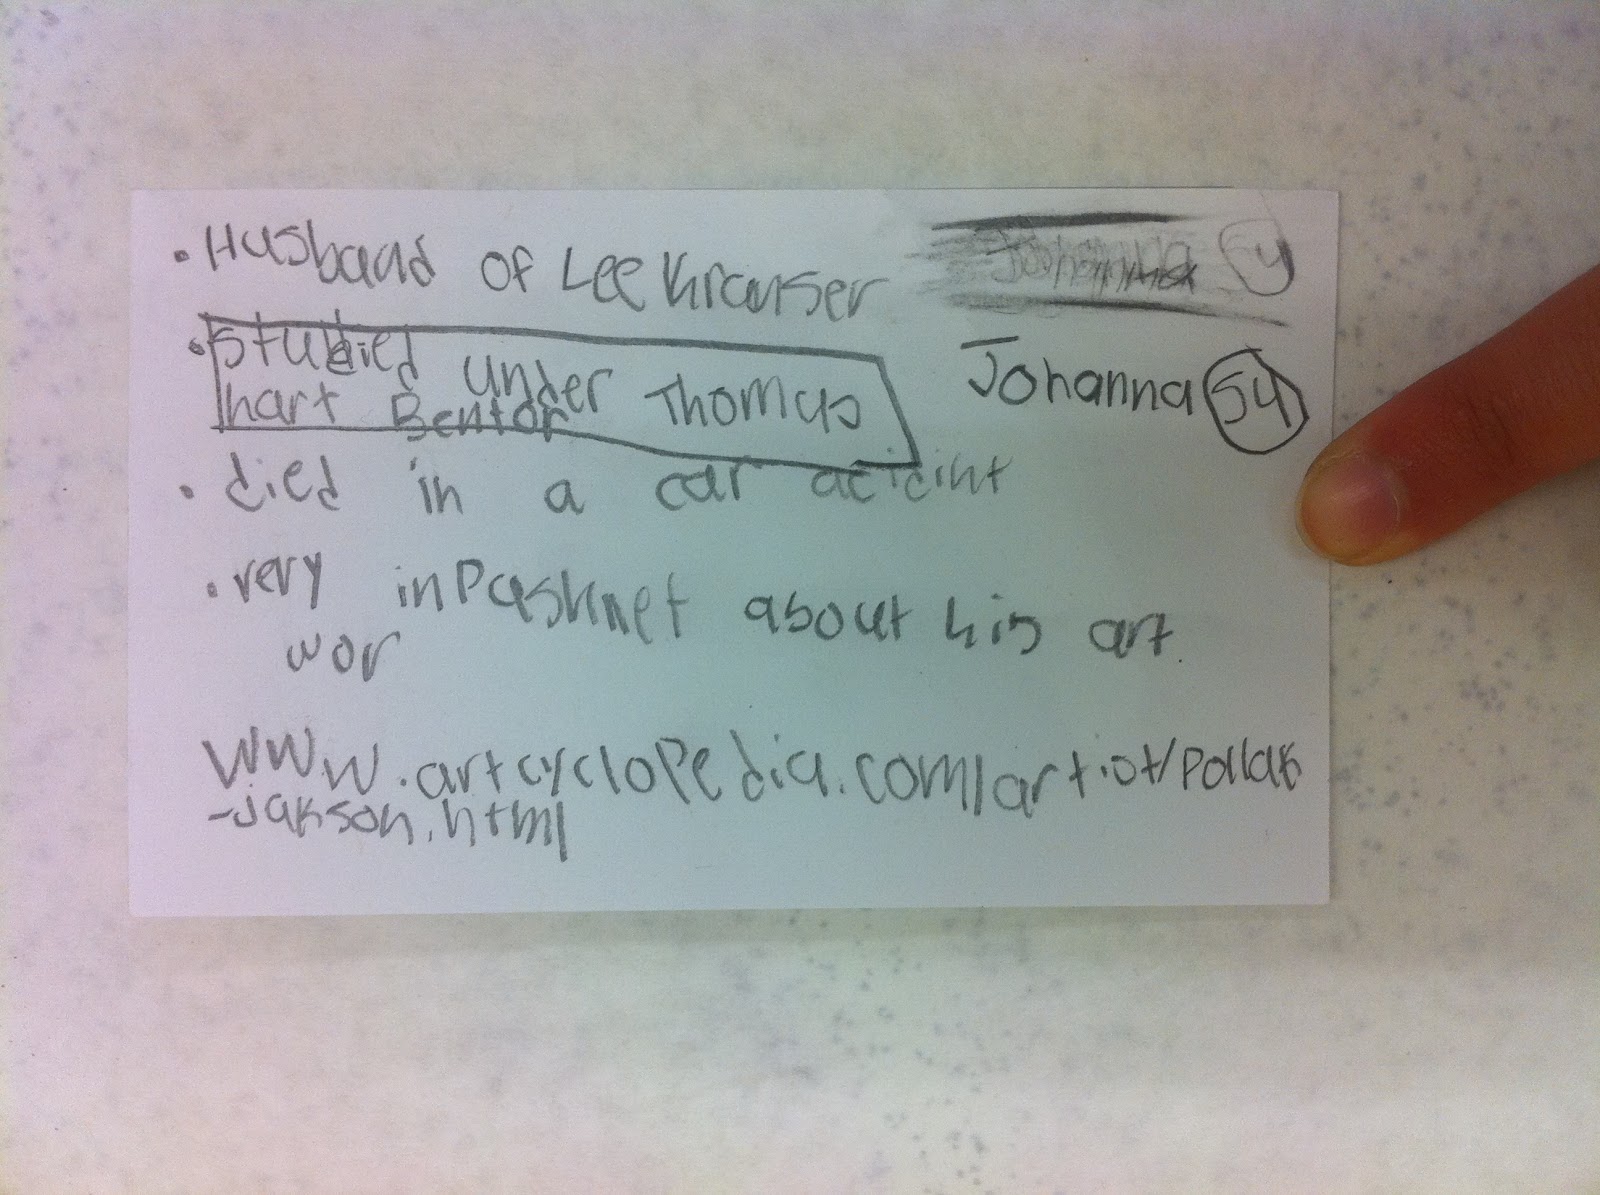 • Husband of Lee Kranser
Johanna 54
• studied under Thomas
hart Bentor
Johanna 54
• died in a car acicint
• very inPashnet about his art
wor
www.artcyclopedia.com/artist/pollak
-jakson.html